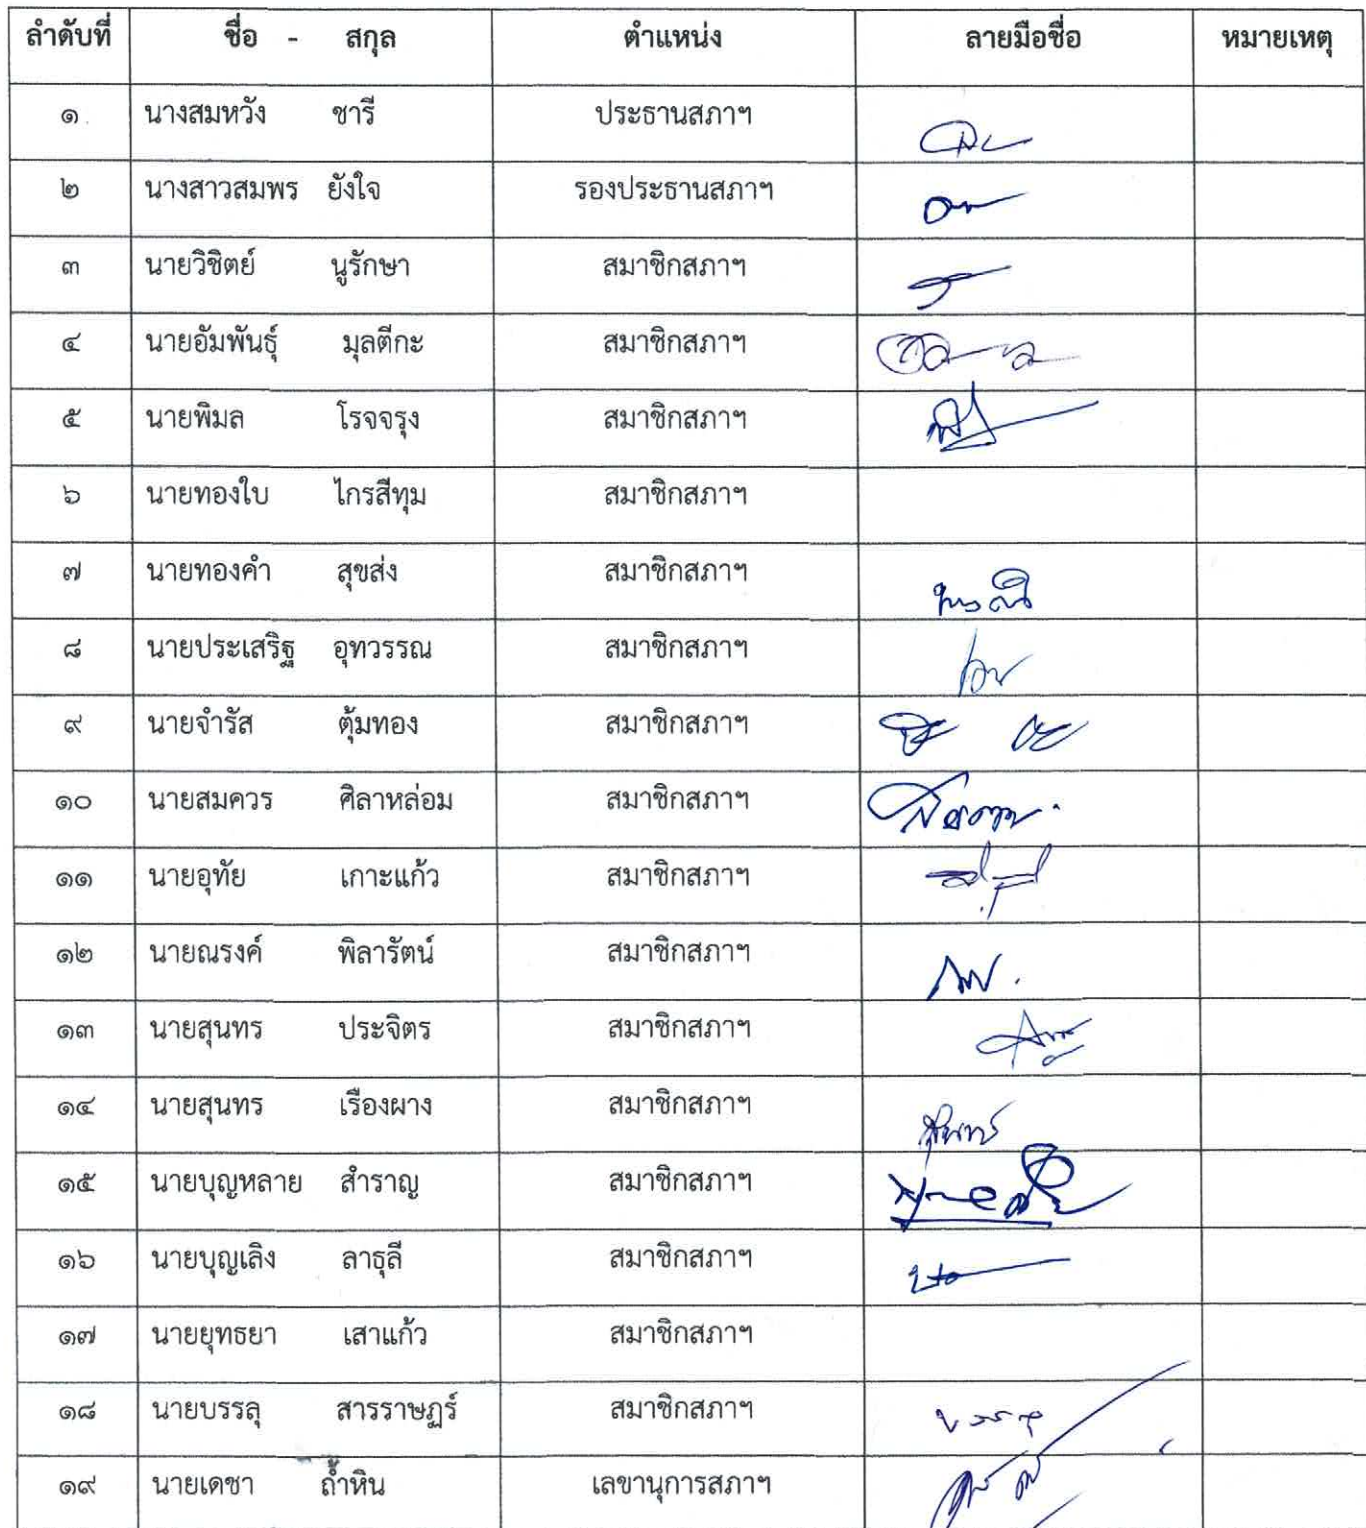 ลำดับที่ ชื่อ - สกุล ตำแหน่ง ลายมือชื่อ หมายเหตุ
๑ นางสมหวัง ชารี ประธานสภาฯ
๒ นางสาวสมพร ยังใจ รองประธานสภาฯ
๓ นายวิชิตย์ นูรักษา สมาชิกสภาฯ
๔ นายอัมพันธุ์ มุลตีกะ สมาชิกสภาฯ
๕ นายพิมล โรจจรุง สมาชิกสภาฯ
๖ นายทองใบ ไกรสีทุม สมาชิกสภาฯ
๗ นายทองคำ สุขส่ง สมาชิกสภาฯ
๘ นายประเสริฐ อุทวรรณ สมาชิกสภาฯ
๙ นายจำรัส ตุ้มทอง สมาชิกสภาฯ
๑๐ นายสมควร ศิลาหล่อม สมาชิกสภาฯ
๑๑ นายอุทัย เกาะแก้ว สมาชิกสภาฯ
๑๒ นายณรงค์ พิลารัตน์ สมาชิกสภาฯ
๑๓ นายสุนทร ประจิตร สมาชิกสภาฯ
๑๔ นายสุนทร เรืองผาง สมาชิกสภาฯ
๑๕ นายบุญหลาย สำราญ สมาชิกสภาฯ
๑๖ นายบุญเลิง ลาธุลี สมาชิกสภาฯ
๑๗ นายยุทธยา เสาแก้ว สมาชิกสภาฯ
๑๘ นายบรรลุ สารราษฎร์ สมาชิกสภาฯ บรรลุ
๑๙ นายเดชา ถ้ำหิน เลขานุการสภาฯ